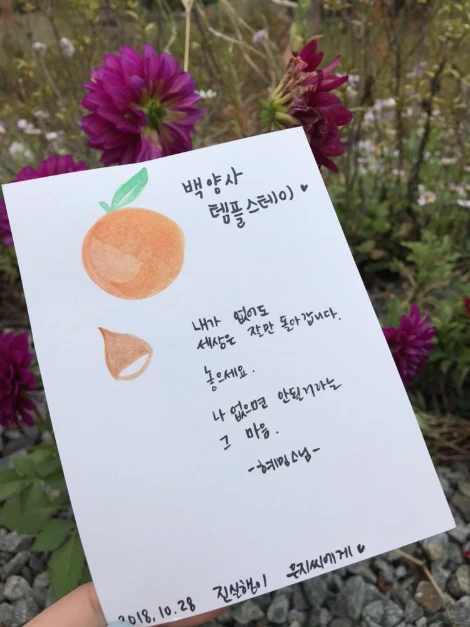 백양사
템플스테이 ♥
내가 없어도
세상은 잘만 돌아갑니다.
놓으세요.
나 없으면 안될거라는
그 마음.
-혜민스님-
2018.10.28 진실행이 은지씨에게 ♥